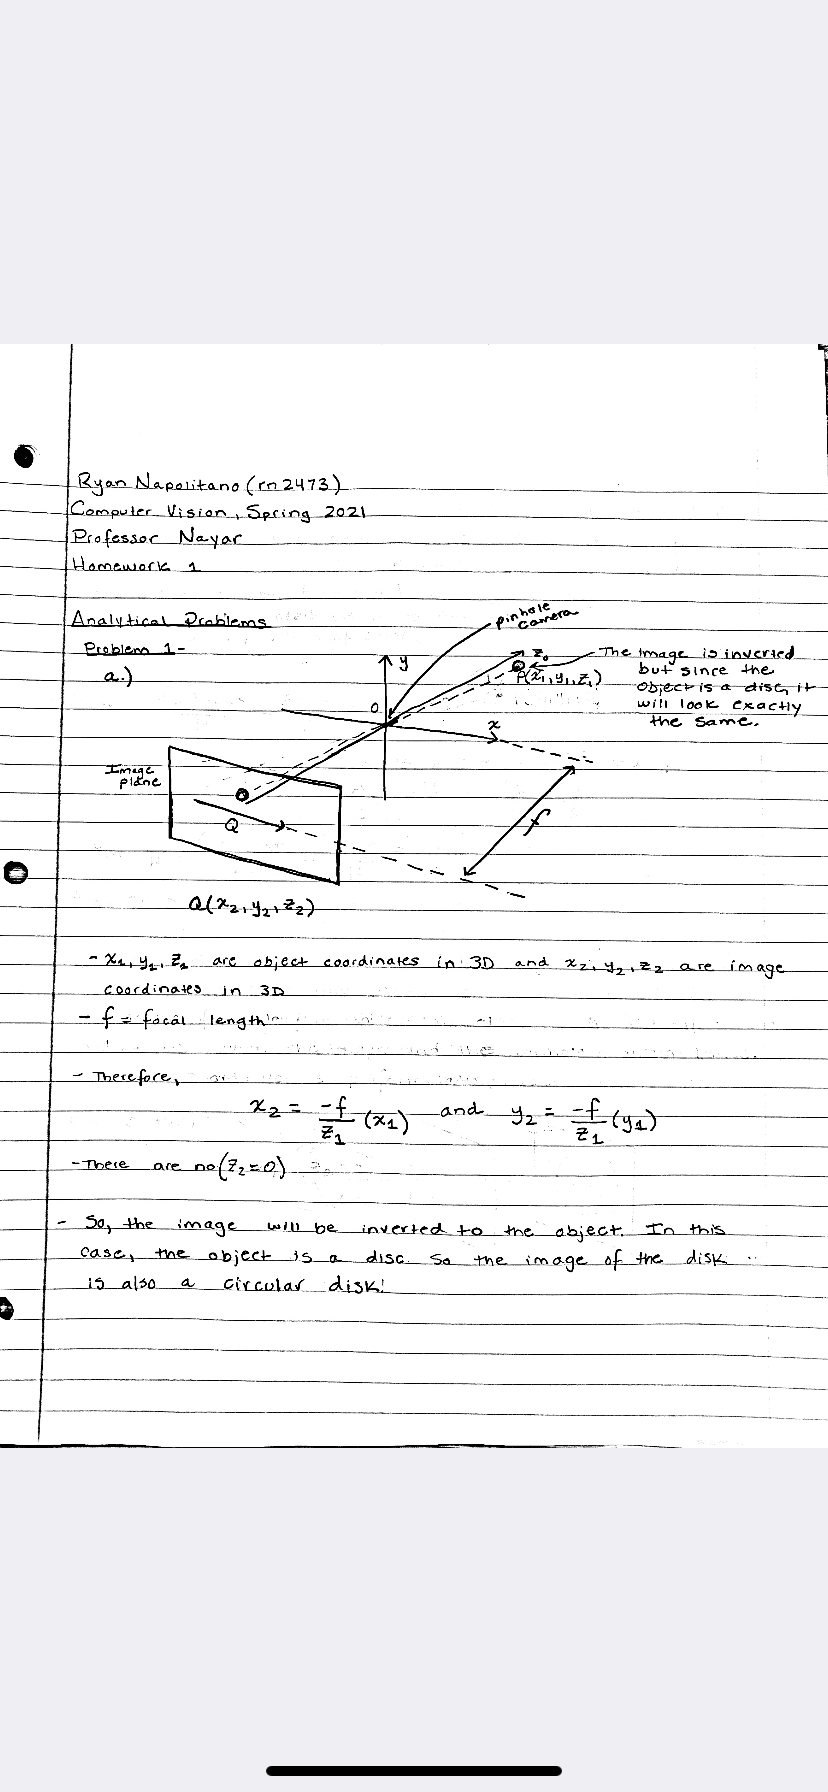 Ryan Napolitano (rn2473)
Computer Vision, Spring 2021
Professor Nayar
Homework 1
Analytical Problems
Problem 1-
a.)
pinhole
camera
y
z₀
P(x₁, y₁, z₁)
The image is inverted
but since the
object is a disc, it
will look exactly
the same.
0
x
Image
plane
f
Q
Q(x₂, y₂, z₂)
- x₁, y₁, z₁ are object coordinates in 3D and x₂, y₂, z₂ are image
coordinates in 3D
- f = focal length
- Therefore,
x₂ = -f/z₁ (x₁) and y₂ = -f/z₁ (y₁)
- There are no (z₂=0)
- So, the image will be inverted to the object. In this
case, the object is a disc. So the image of the disk
is also a circular disk!